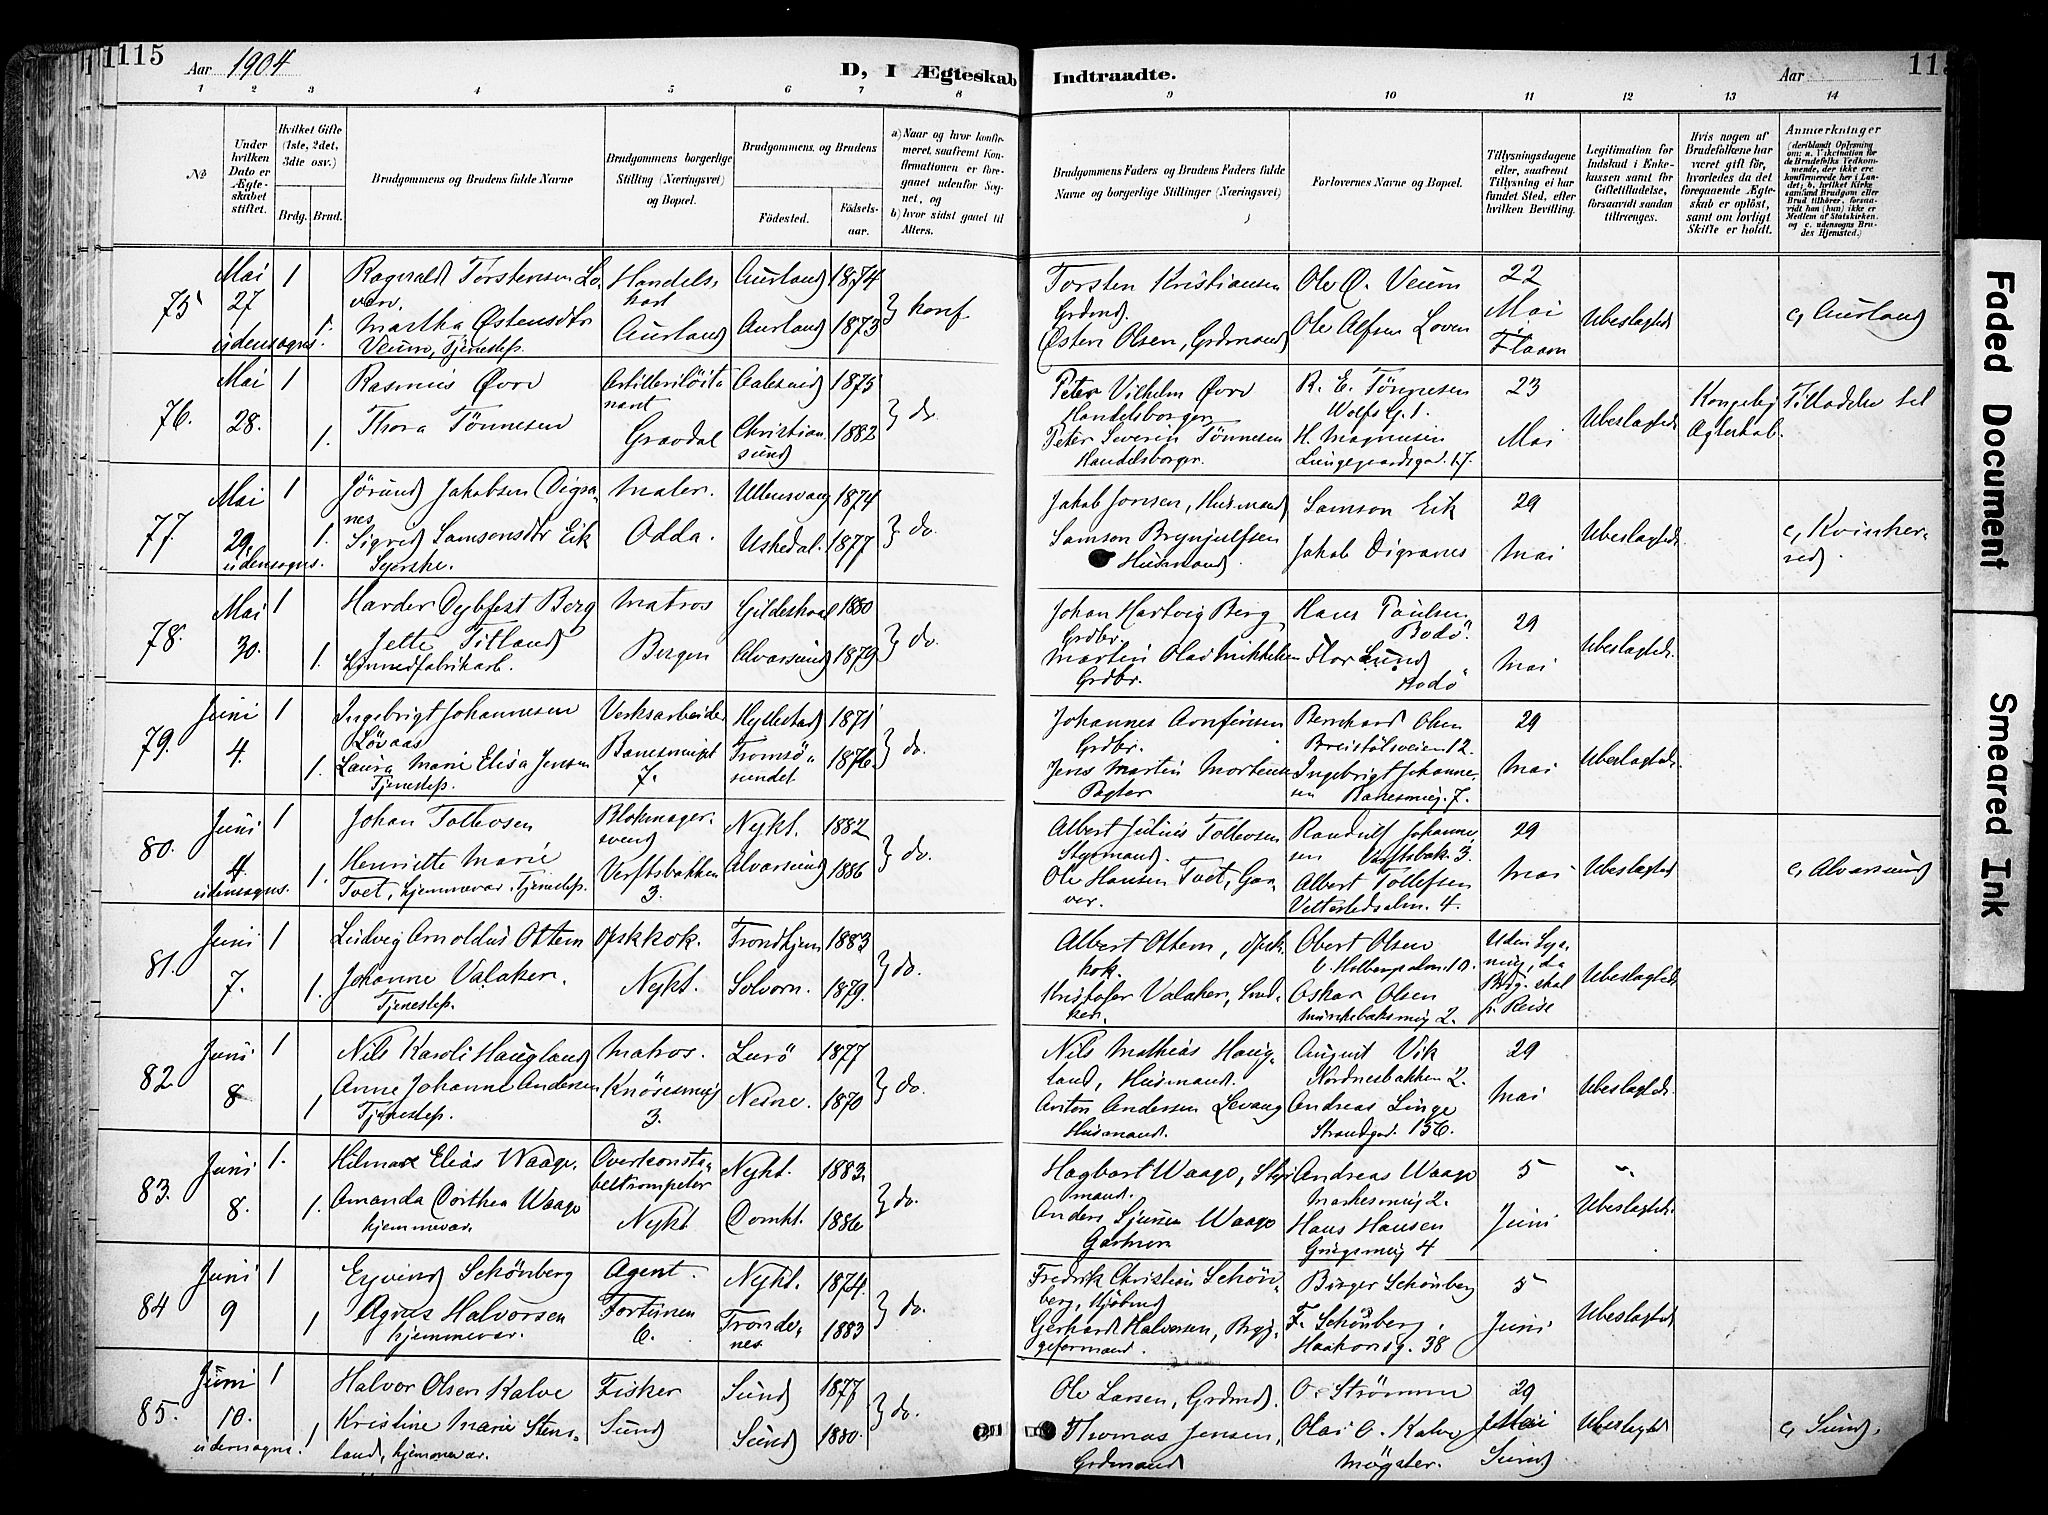 1115
Aar 1904
D, I Ægteskab Indtraadte.
Aar
11
1 2 3 4 5 6 7 8 9 10 11 12 13 14
No
Under hvilken Dato er Ægteskabet stiftet.
Hvilket Gifte (1ste, 2det, 3dte osv.)
Brdg. Brud.
Brudgommens og Brudens fulde Navne
Brudgommens borgerlige Stilling (Næringsvei) og Bopæl.
Brudgommens og Brudens
Fødested. Fødselsaar.
a) Naar og hvor konfirmeret, saafremt Konfirmationen er foregaaet udenfor Sognet, og
b) hvor sidst gaaet til Alters.
Brudgommens Faders og Brudens Faders fulde Navne og borgerlige Stillinger (Næringsvei)
Forlovernes Navne og Bopæl.
Tillysningsdagene eller, saafremt Tillysning ei har fundet Sted, efter hvilken Bevilling.
Legitimation for Indskud i Enkekassen samt for Giftetilladelse, forsaavidt saadan tiltrænges.
Hvis nogen af Brudefolkene har været gift før, hvorledes da det foregaaende Ægteskab er opløst, samt om lovligt Skifte er holdt.
Anmærkninger (deriblandt Oplysning om: a. Vaccination for de Brudefolks Vedkommende, der ikke ere konfirmerede her i Landet; b. hvilket Kirkesamfund Brudgom eller Brud tilhører, forsaavidt han (hun) ikke er Medlem af Statskirken, og c. udensogns Brudes Hjemsted.)
75 Mai 27 udensogns. 1 1. Ragvald Torstensen Loven. Martha Østensdtr Veum, Tjenestep. Handelskarl Aurland Aurland 1874 Aurland 1873 } konf.
Torsten Kristiansen Grdmd. Østen Olsen, Grdmand Ole O. Veum Ole Alfsen Loven 22 Mai Flaam Ubeslægtede c, Aurland
76. Mai 28. 1 1. Rasmus Øvre Thora Tönnesen Artilleriløitenant Gravdal Aalesund 1875 Christiansund 1882 } do.
Peter Vilhelm Øvre Handelsborger Peter Severin Tønnesen Handelsborger. R. E. Tönnesen Wolfsg. 1. H. Magnusen Lungegaardsgad. 17. 23 Mai Ubeslægtede Kongelig Tilladelse til Ægteskab.
77. Mai 29. udensogns. 1 1. Jörund Jakobsen Digranes Sigrid Samsonsdtr Eik Syerske. Maler. Odda. Ullensvang 1874 Uskedal. 1877 } do.
Jakob Jonsen, Husmand Samson Brynjulfsen Husmand Samson Eik Jakob Digranes 29 Mai Ubeslægtede c, Kvinherred.
78. Mai 30. 1 1. Harder Dybfest Berg Jette Titland Matros Bergen Gildeskaal 1880 Alvarsund 1879 } do.
Johan Hartvig Berg Grdbr. Martin Olai Mikkelsen Grdbr. Hans Paulsen Bodö. Lund Bodö 29 Mai Ubeslægtede.
79. Juni 4. 1 1. Ingebrigt Johannesen Lövaas Laura Marie Elisa Jensen Tjenestep. Verksarbeider 7. Hyllestad 1871 Tromsösundet 1876. } do.
Johannes Arnfinsen Grdbr. Jens Martin Mortensen Bernhard Olsen Breistölsveien 12. Ingebrigt Johannesen 7. 29 Mai Ubeslægtede.
80. Juni 4. udensogns. 1 1. Johan Tollevsen Henriette Marie Tvet, hjemmevær. Tjenestep. Blokmagersvend Verftsbakken 3. Nykt. 1882 Alvarsund 1886 } do.
Albert Julius Tollevsen Styrmand. Ole Hansen Tvet, Gaver. Randulf Johannesen Verftsbak. 3. Albert Tollefsen 4. 29 Mai Ubeslægtede c, Alvarsund
81. Juni 7. 1 1. Ludvig Arnoldus Ottem Johanne Valaker. Tjenestep. Dpskkok. Nykt. Trondhjem 1883 Solvorn. 1879. } do.
Albert Ottem, Dpskkok. Kristofer Valaker, Snedker. Obert Olsen Oskar Olsen 2. Uden Lysning, da Brdg. skal p. Reise Ubeslægtede
82 Juni 8 1 1 Nils Karoli Haugland Anne Johanne Andersen Tjenestep. Matros. Knösesmug 3. Lurö 1877 Nesne. 1870 } do.
Nils Mathias Haugland, Husmand. Anton Andersen Levang Husmand. August Vik Nordnesbakken 2. Andreas Linge Strandgad. 156. 29 Mai Ubeslægtede.
83. Juni 8. 1. 1. Hilmar Elias Waage. Amanda Dorthea Waage hjemmevær. Overkonstabeltrompeter Nykt Nykt. 1883. Domkt. 1886. } do.
Hagbart Waage, Styrmand. Anders Sjursen Waage Gartner Andreas Waage 2. Hans Hansen 4 5 Juni Ubeslægtede.
84 Juni 9 1 1 Eyvind Schönberg Agnes Halvorsen hjemmevær. Agent. Fortunen 6. Nykt. 1874. Trondenes 1883 } do.
Fredrik Christian Schönberg, Kjöbmd Gerhard Halversen, Bryggeformand. Birger Schönberg F. Schönberg, Haakonsg. 38 5 Juni Ubeslægtede
85. Juni 10. udensogns. 1 1 Halvor Olsen Kalve Kristine Marie Stensland, hjemmevær. Fisker Sund Sund 1877 Sund 1880. } do.
Ole Larsen, Grdmd. Thomas Jensen, Grdmand O. Strömme Olai O. Kalve Mögster. 29 Mai Sund Ubeslægtede c, Sund.
Faded Document
Smeared Ink